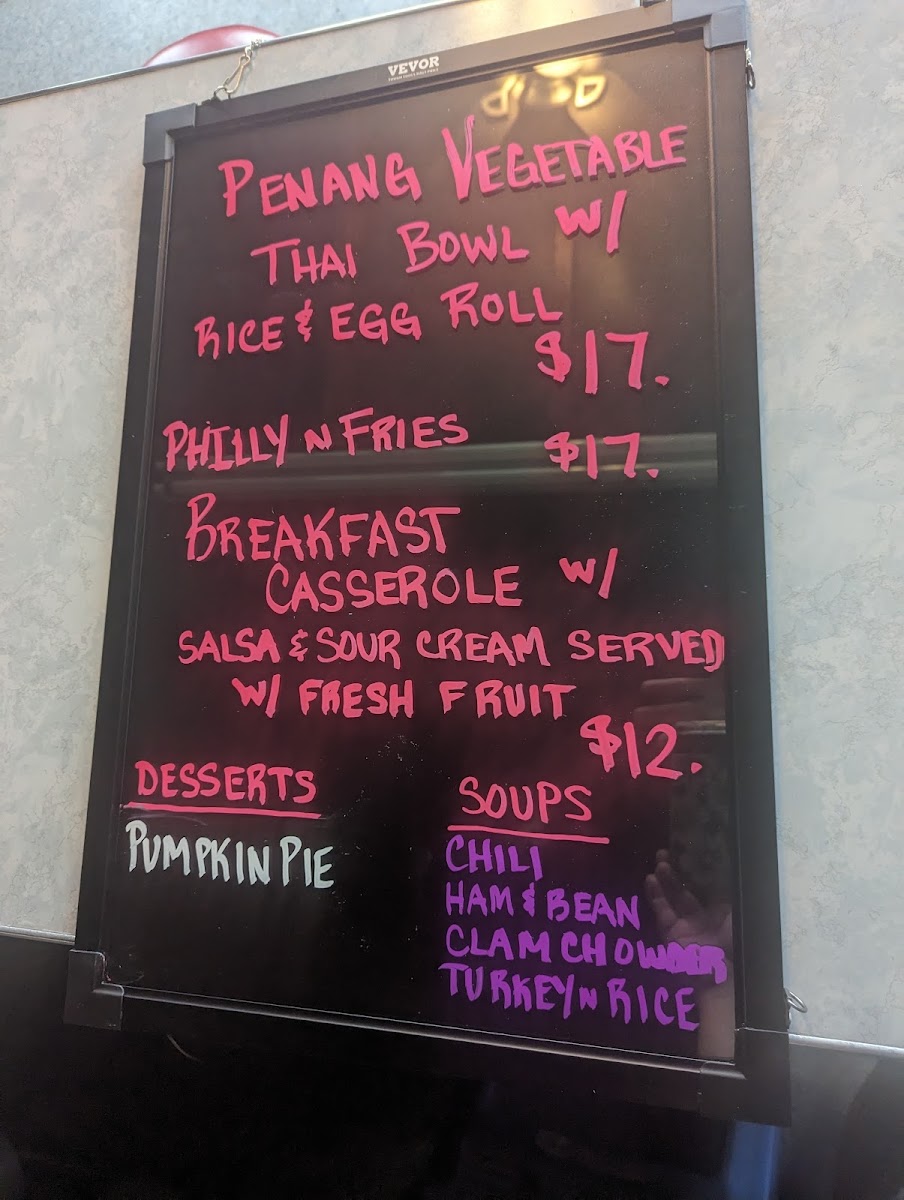 VEVOR
PENANG VEGETABLE
THAI BOWL W/
RICE & EGG ROLL
$17.
PHILLY N FRIES $17.
BREAKFAST
CASSEROLE W/
SALSA & SOUR CREAM SERVED
W/ FRESH FRUIT
$12.
DESSERTS
PUMPKIN PIE
SOUPS
CHILI
HAM & BEAN
CLAM CHOWDER
TURKEY N RICE